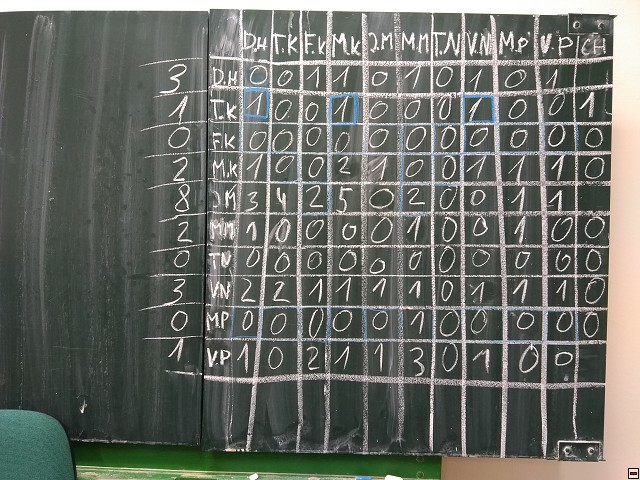 D.H T.K F.K M.K J.M M.M T.N V.N M.P V.P CH
3 D.H 0 0 1 1 0 1 0 1 0 1
1 T.K 1 0 0 1 0 0 0 1 0 0 1
0 F.K 0 0 0 0 0 0 0 0 0 0 0
2 M.K 1 0 0 2 1 0 0 1 1 1 0
8 J.M 3 4 2 5 0 2 0 0 1 1
2 M.M 1 0 0 0 0 1 0 0 1 0 0
0 T.N 0 0 0 0 0 0 0 0 0 0 0
3 V.N 2 2 1 1 1 1 0 1 1 1 0
0 M.P 0 0 0 0 0 1 0 0 0 0 0
1 V.P 1 0 2 1 1 3 0 1 0 0